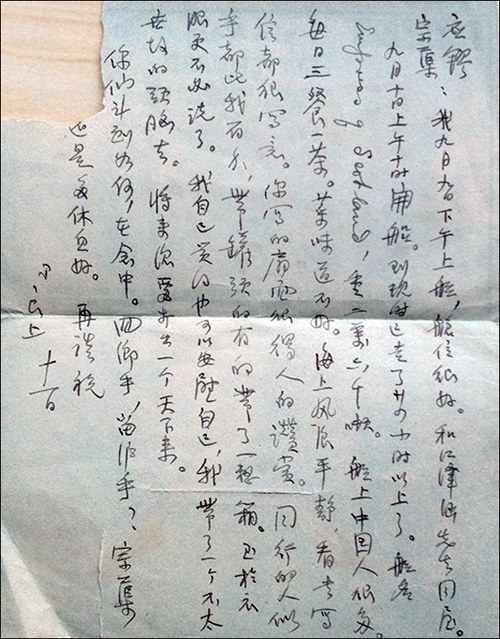 应铨
宗蕖：我九月九日下午上船，船位很好。和江泽涵先生同屋。
九月十日上午十时开船。到现时已走了廿四小时以上了。船名
Empress of Scotland，重二万六千吨。船上中国人很多。
每日三餐一茶。菜味道不好。海上风浪平静，看书写
信都很写意。你写的扇面很得人的赞赏。同行的人似
乎都比我有办，带罐头的有的带了一整箱。至于衣
服更不必说了。我自己觉得也可以安慰自己，我带了一个不太
的头脑去。将来须要打出一个天下来。
你们斗到如何，在念中。回乡乎，留沪乎？宗蕖
还是多休息好。再谈 祝
上 十一日